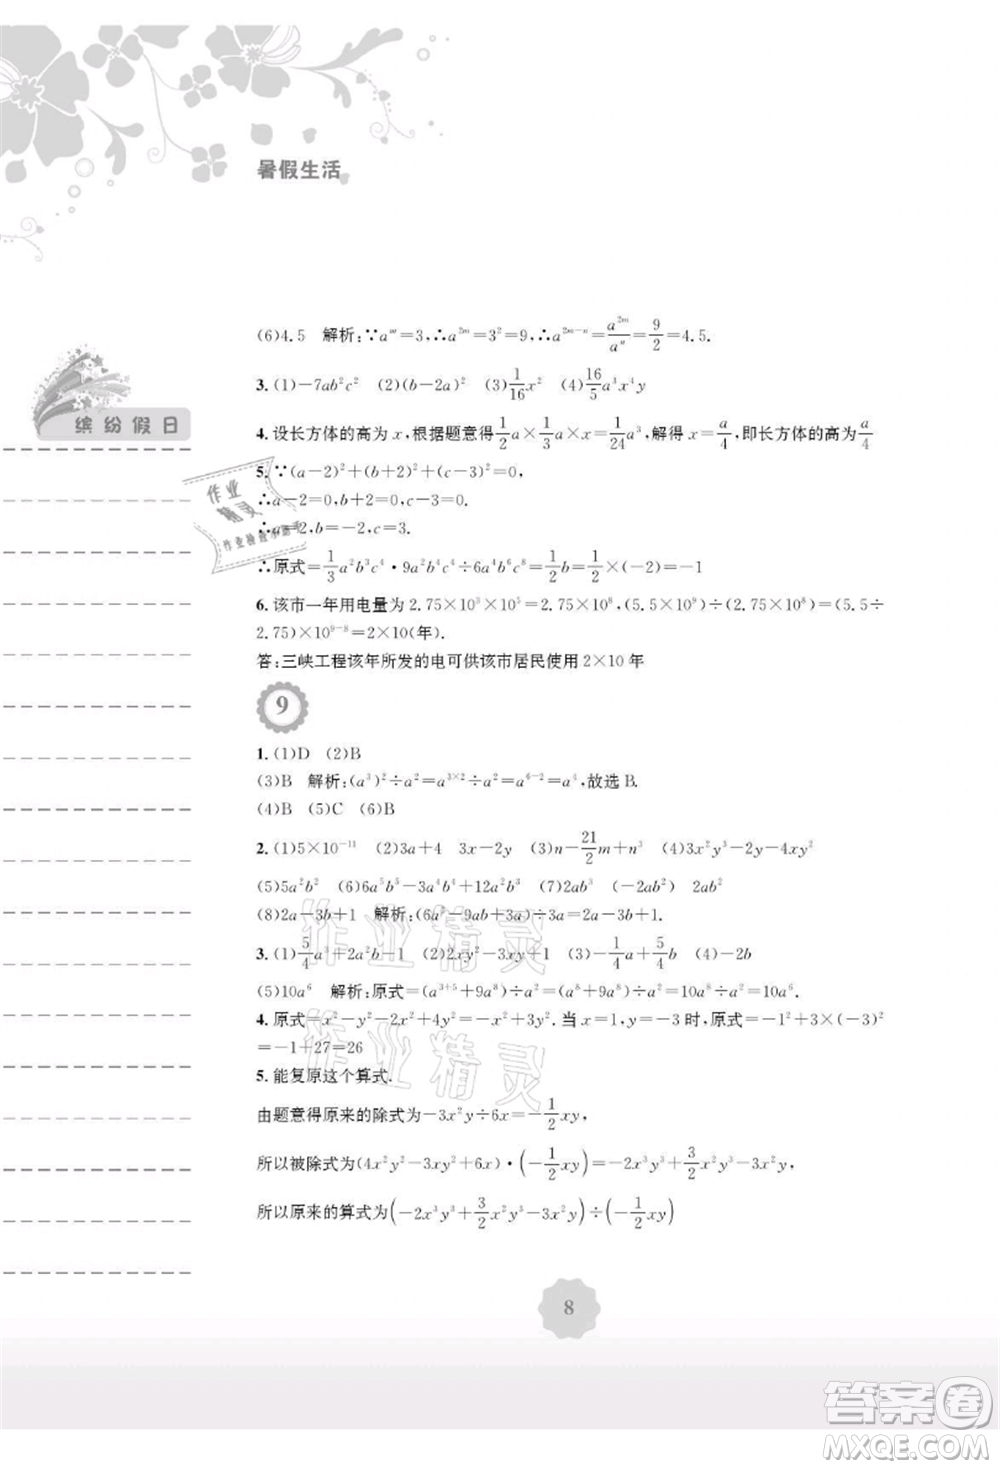 暑假生活
缤纷假日
(6)4.5 解析:∵aᵐ=3,∴a²ᵐ=3²=9,∴a²ᵐ⁻ⁿ=a²ᵐ/aⁿ=9/2=4.5.
3. (1)-7ab²c² (2)(b-2a)² (3)1/16x² (4)16/5a³x⁴y
4. 设长方体的高为x,根据题意得1/2a×1/3a×x=1/24a³,解得x=a/4,即长方体的高为a/4
5. ∵(a-2)²+(b+2)²+(c-3)²=0,
∴a-2=0,b+2=0,c-3=0.
∴a=2,b=-2,c=3.
∴原式=1/3a²b³c⁴·9a²b⁴c²÷6a⁴b⁶c⁶=1/2b=1/2×(-2)=-1
6. 该市一年用电量为2.75×10³×10⁵=2.75×10⁸,(5.5×10⁹)÷(2.75×10⁸)=(5.5÷
2.75)×10⁹⁻⁸=2×10(年).
答:三峡工程该年所发的电可供该市居民使用2×10年
9
1. (1)D (2)B
(3)B 解析:(a³)²÷a²=a³ˣ²÷a²=a⁶⁻²=a⁴,故选B.
(4)B (5)C (6)B
2. (1)5×10⁻¹¹ (2)3a+4 3x-2y (3)n-21/2m+n³ (4)3x²y³-2y-4xy²
(5)5a²b² (6)6a⁵b⁴-3a⁴b²+12a⁵b² (7)2ab² (-2ab²) 2ab²
(8)2a-3b+1 解析:(6a²-9ab+3a)÷3a=2a-3b+1.
3. (1)5/4a³+2a²b-1 (2)2xy²-3x-6y (3)-1/4a+5/4b (4)-2
(5)10a⁶ 解析:原式=(a³⁺⁵+9a⁸)÷a²=(a⁸+9a⁸)÷a²=10a⁸÷a²=10a⁶.
4. 原式=x²-y²-2x²+4y²=-x²+3y².当x=1,y=-3时,原式=-1²+3×(-3)²
=-1+27=26
5. 能复原这个算式.
由题意得原来的除式为-3x²y÷6x=-1/2xy,
所以被除式为(4x²y²-3xy²+6x)·(-1/2xy)=-2x³y³+3/2x²y³-3x²y,
所以原来的算式为(-2x³y³+3/2x²y³-3x²y)÷(-1/2xy)
8
作业精灵
作业精灵
作业精灵
答案圈
MXQE.COM